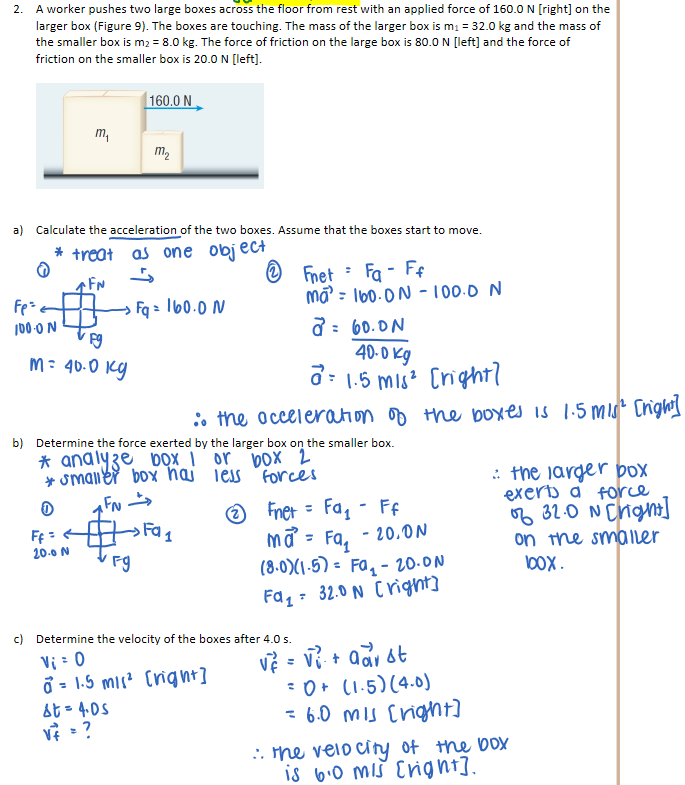 2. A worker pushes two large boxes across the floor from rest with an applied force of 160.0 N [right] on the
larger box (Figure 9). The boxes are touching. The mass of the larger box is m₁ = 32.0 kg and the mass of
the smaller box is m₂ = 8.0 kg. The force of friction on the large box is 80.0 N [left] and the force of
friction on the smaller box is 20.0 N [left].
160.0 N
m₁
m₂
a) Calculate the acceleration of the two boxes. Assume that the boxes start to move.
* treat as one object
①
FN
Ff =
100.0 N
Fa = 160.0 N
Fg
m = 40.0 kg
② Fnet = Fa - Ff
ma⃗ = 160.0 N - 100.0 N
a⃗ = 60.0 N
40.0 kg
a⃗ = 1.5 m/s² [right]
∴ the acceleration of the boxes is 1.5 m/s² [right]
b) Determine the force exerted by the larger box on the smaller box.
* analyze box 1 or box 2
* smaller box has less forces
①
FN
Ff =
20.0 N
Fa₁
Fg
② Fnet = Fa₁ - Ff
ma⃗ = Fa₁ - 20.0N
(8.0)(1.5) = Fa₁ - 20.0N
Fa₁ = 32.0 N [right]
∴ the larger box
exerts a force
of 32.0 N [right]
on the smaller
box.
c) Determine the velocity of the boxes after 4.0 s.
Vi = 0
a⃗ = 1.5 m/s² [right]
Δt = 4.0s
v⃗f = ?
v⃗f = v⃗i + a⃗av Δt
= 0 + (1.5)(4.0)
= 6.0 m/s [right]
∴ the velocity of the box
is 6.0 m/s [right].